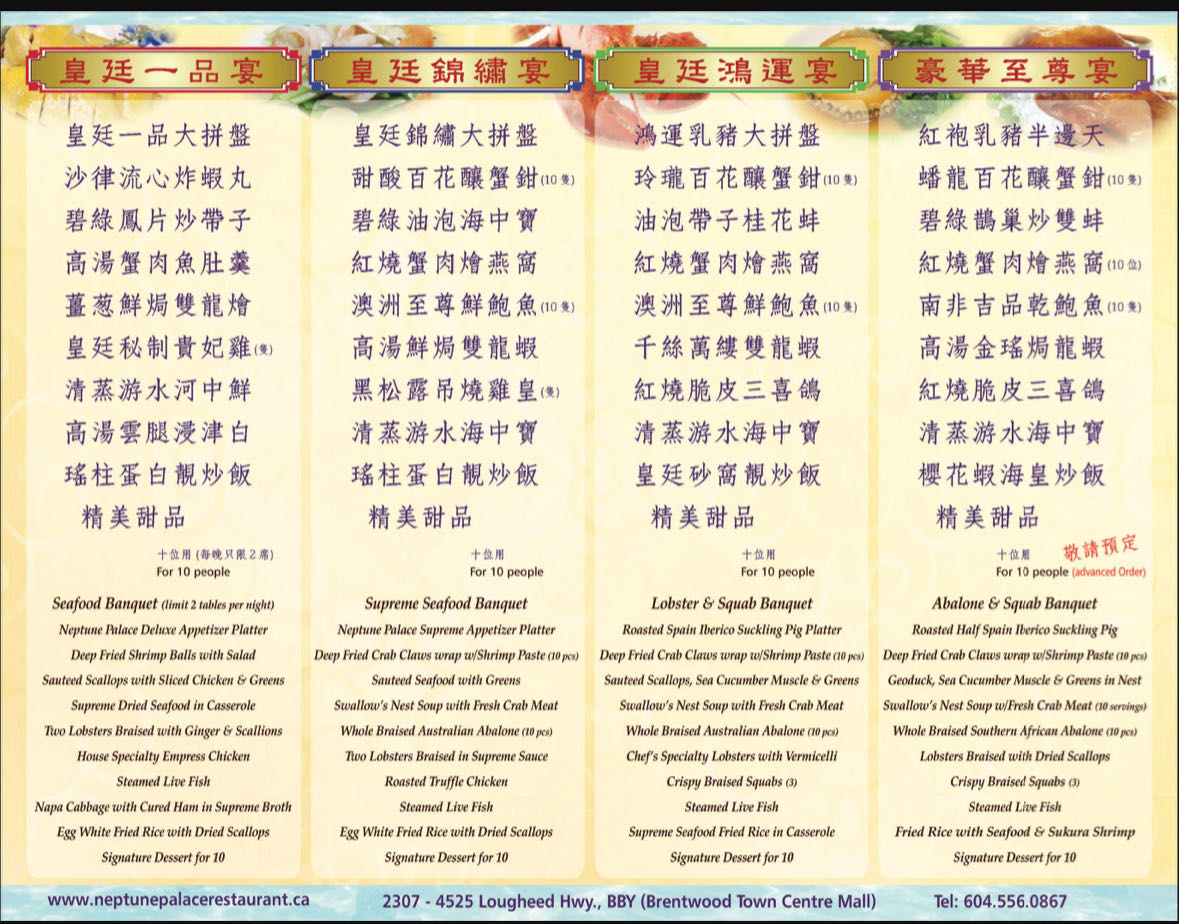 皇廷一品宴
皇廷一品大拼盤
沙律流心炸蝦丸
碧綠鳳片炒帶子
高湯蟹肉魚肚羹
薑葱鮮焗雙龍燴
皇廷秘制貴妃雞(隻)
清蒸游水河中鮮
高湯雲腿浸津白
瑤柱蛋白靚炒飯
精美甜品
十位用 (每晚只限2席)
For 10 people
Seafood Banquet (limit 2 tables per night)
Neptune Palace Deluxe Appetizer Platter
Deep Fried Shrimp Balls with Salad
Sauteed Scallops with Sliced Chicken & Greens
Supreme Dried Seafood in Casserole
Two Lobsters Braised with Ginger & Scallions
House Specialty Empress Chicken
Steamed Live Fish
Napa Cabbage with Cured Ham in Supreme Broth
Egg White Fried Rice with Dried Scallops
Signature Dessert for 10
皇廷錦繡宴
皇廷錦繡大拼盤
甜酸百花釀蟹鉗(10 隻)
碧綠油泡海中寶
紅燒蟹肉燴燕窩
澳洲至尊鮮鮑魚(10 隻)
高湯鮮焗雙龍蝦
黑松露吊燒雞皇(隻)
清蒸游水海中寶
瑤柱蛋白靚炒飯
精美甜品
十位用
For 10 people
Supreme Seafood Banquet
Neptune Palace Supreme Appetizer Platter
Deep Fried Crab Claws wrap w/Shrimp Paste (10 pcs)
Sauteed Seafood with Greens
Swallow's Nest Soup with Fresh Crab Meat
Whole Braised Australian Abalone (10 pcs)
Two Lobsters Braised in Supreme Sauce
Roasted Truffle Chicken
Steamed Live Fish
Egg White Fried Rice with Dried Scallops
Signature Dessert for 10
皇廷鴻運宴
鴻運乳豬大拼盤
玲瓏百花釀蟹鉗(10 隻)
油泡帶子桂花蚌
紅燒蟹肉燴燕窩
澳洲至尊鮮鮑魚(10 隻)
千絲萬縷雙龍蝦
紅燒脆皮三喜鴿
清蒸游水海中寶
皇廷砂窩靚炒飯
精美甜品
十位用
For 10 people
Lobster & Squab Banquet
Roasted Spain Iberico Suckling Pig Platter
Deep Fried Crab Claws wrap w/Shrimp Paste (10 pcs)
Sauteed Scallops, Sea Cucumber Muscle & Greens
Swallow's Nest Soup with Fresh Crab Meat
Whole Braised Australian Abalone (10 pcs)
Chef's Specialty Lobsters with Vermicelli
Crispy Braised Squabs (3)
Steamed Live Fish
Supreme Seafood Fried Rice in Casserole
Signature Dessert for 10
豪華至尊宴
紅袍乳豬半邊天
蟠龍百花釀蟹鉗(10 隻)
碧綠鵲巢炒雙蚌
紅燒蟹肉燴燕窩(10 位)
南非吉品乾鮑魚(10 隻)
高湯金瑤焗龍蝦
紅燒脆皮三喜鴿
清蒸游水海中寶
櫻花蝦海皇炒飯
精美甜品
敬請預定
十位用
For 10 people (advanced Order)
Abalone & Squab Banquet
Roasted Half Spain Iberico Suckling Pig
Deep Fried Crab Claws wrap w/Shrimp Paste (10 pcs)
Geoduck, Sea Cucumber Muscle & Greens in Nest
Swallow's Nest Soup w/Fresh Crab Meat (10 servings)
Whole Braised Southern African Abalone (10 pcs)
Lobsters Braised with Dried Scallops
Crispy Braised Squabs (3)
Steamed Live Fish
Fried Rice with Seafood & Sukura Shrimp
Signature Dessert for 10
www.neptunepalacerestaurant.ca
2307 - 4525 Lougheed Hwy., BBY (Brentwood Town Centre Mall)
Tel: 604.556.0867